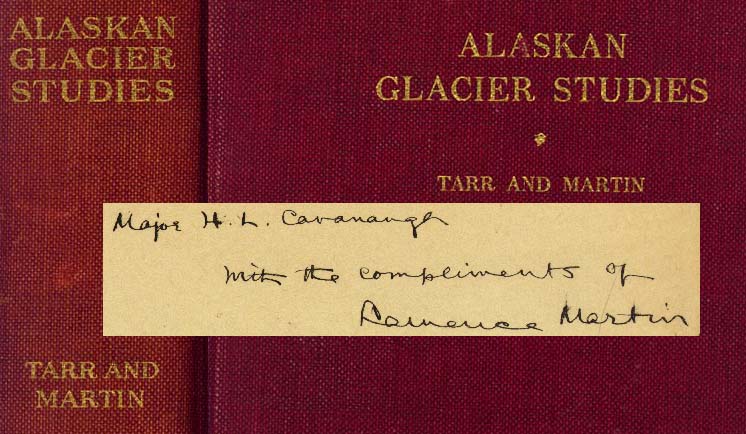 ALASKAN
GLACIER
STUDIES
TARR AND
MARTIN
ALASKAN
GLACIER STUDIES
TARR AND MARTIN
Major H. L. Cavanaugh
with the compliments of
Lawrence Martin